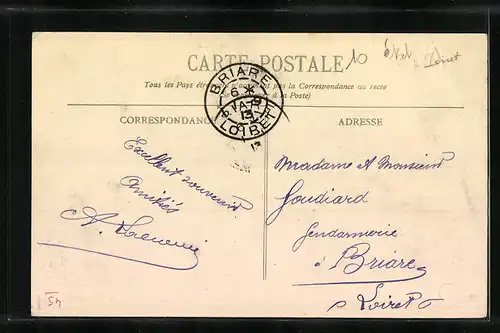 CARTE POSTALE
10
Tous les Pays pas la Correspondance au recto
à la Poste)
BRIARE
6 *
13
LOIRET
CORRESPONDANC
ADRESSE
Excellent souvenir
Amitiés
A.
Madame & Monsieur
Goudiard
Gendarmerie
à Briare
Loiret
54